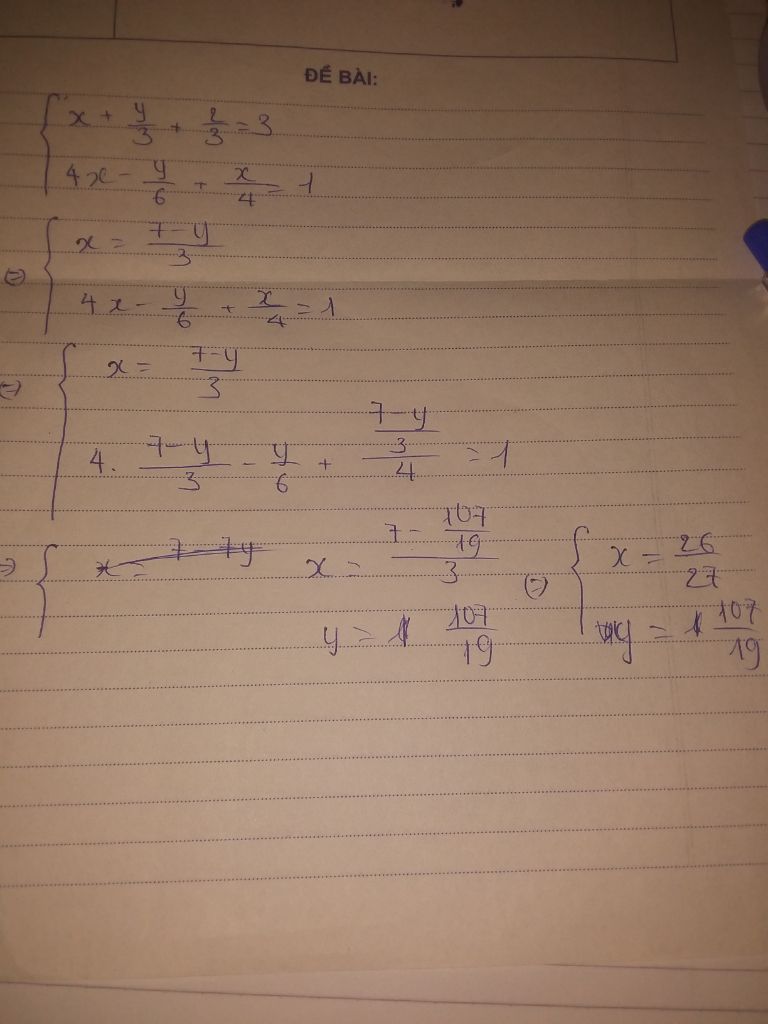 ĐỀ BÀI:
x + y/3 + 2/3 = 3
4x - y/6 + x/4 = 1
(=) x = (7-y)/3
4x - y/6 + x/4 = 1
(=) x = (7-y)/3
4. (7-y)/3 - y/6 + ((7-y)/3)/4 = 1
(=) x = (7 - 107/19)/3 (=) x = 26/27
y = 107/19 y = 107/19